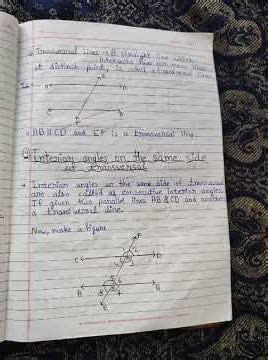 → Transversal line → A straight line which
intersects two or more lines
at distinct points is called a transversal lines
E
A B
C D
F
AB || CD and EF is a transversal line.
Interior angles on the same side
of transversal
→ Interior angles on the same side of transversal
are also called as consecutive interior angles.
If given two parallel lines AB || CD and
a transversal line.
Now, make a figure
C D
A B